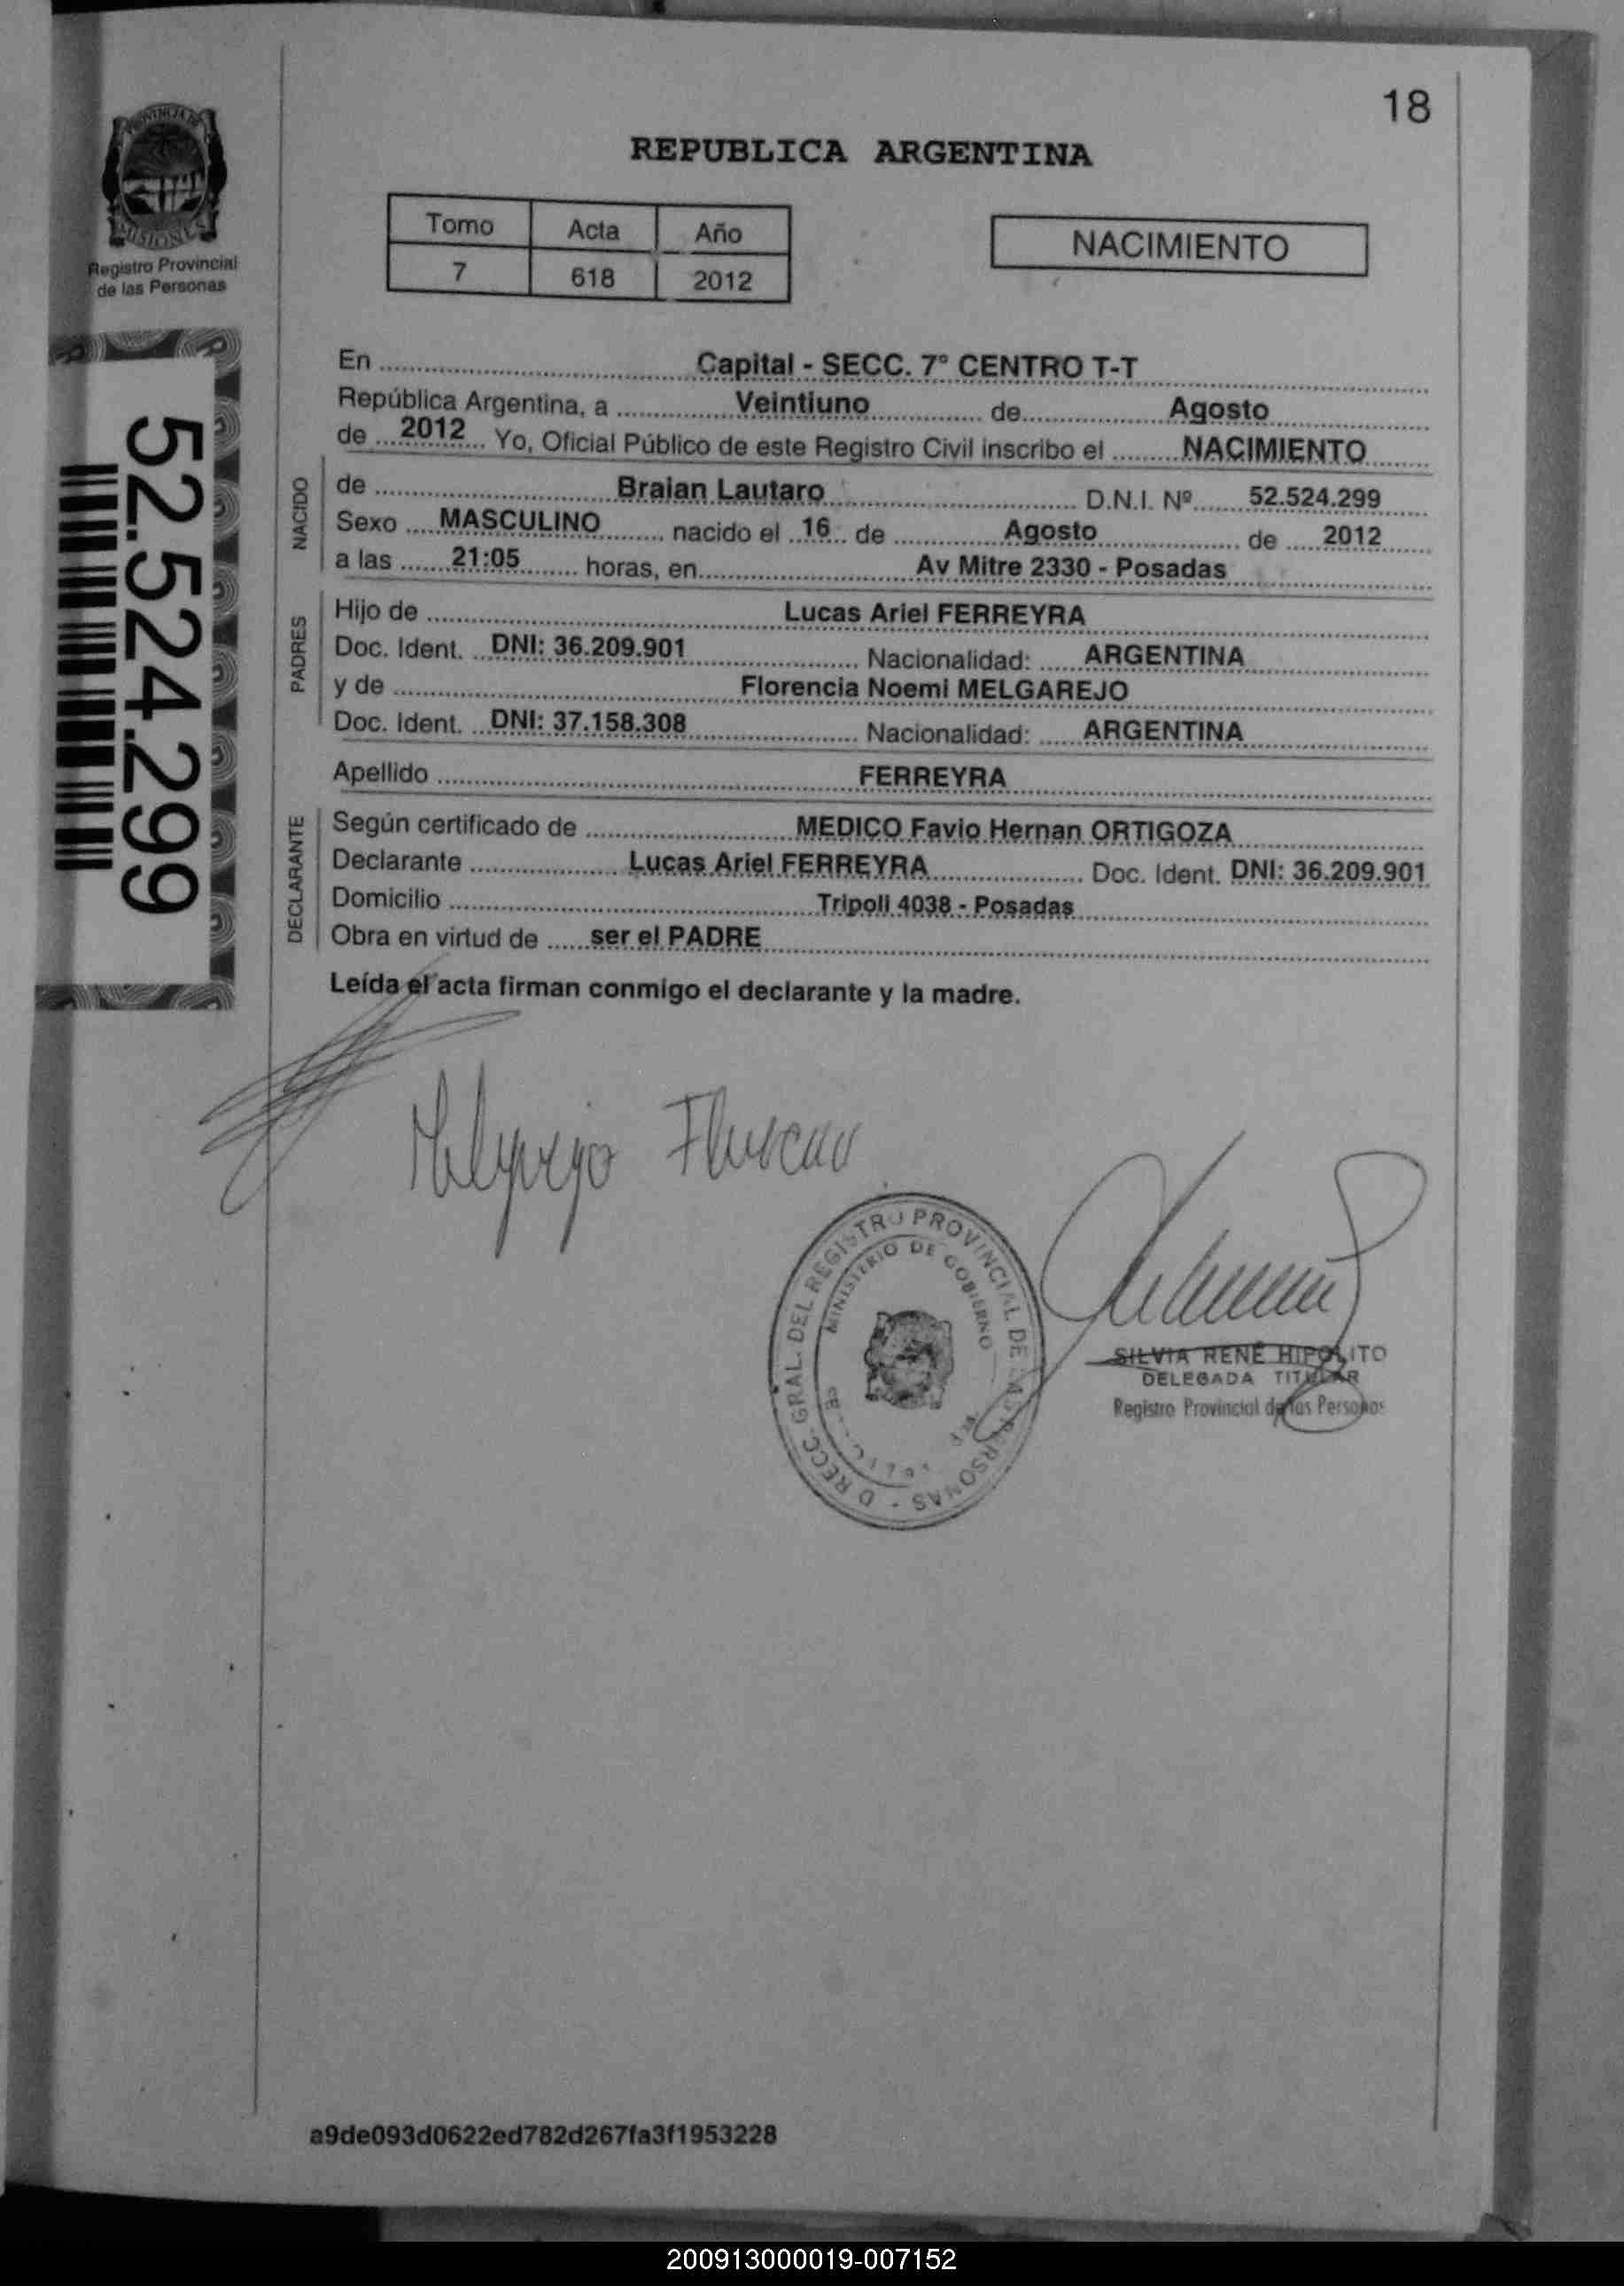 18
REPUBLICA ARGENTINA
PROVINCIA DE
MISIONES
Registro Provincial
de las Personas
Tomo Acta Año
7 618 2012
NACIMIENTO
52.524.299
En Capital - SECC. 7° CENTRO T-T
República Argentina, a Veintiuno de Agosto
de 2012 Yo, Oficial Público de este Registro Civil inscribo el NACIMIENTO
NACIDO
de Braian Lautaro D.N.I. Nº 52.524.299
Sexo MASCULINO nacido el 16 de Agosto de 2012
a las 21:05 horas, en Av Mitre 2330 - Posadas
PADRES
Hijo de Lucas Ariel FERREYRA
Doc. Ident. DNI: 36.209.901 Nacionalidad: ARGENTINA
y de Florencia Noemi MELGAREJO
Doc. Ident. DNI: 37.158.308 Nacionalidad: ARGENTINA
Apellido FERREYRA
DECLARANTE
Según certificado de MEDICO Favio Hernan ORTIGOZA
Declarante Lucas Ariel FERREYRA Doc. Ident. DNI: 36.209.901
Domicilio Tripoli 4038 - Posadas
Obra en virtud de ser el PADRE
Leída el acta firman conmigo el declarante y la madre.
DIRECC. GRAL. DEL REGISTRO PROVINCIAL DE LAS PERSONAS -
MINISTERIO DE GOBIERNO
SILVIA RENÉ HIPOLITO
DELEGADA TITULAR
Registro Provincial de las Personas
a9de093d0622ed782d267fa3f1953228
200913000019-007152